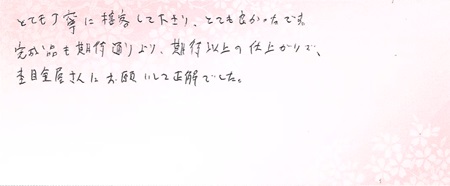 とても丁寧に接客して下さり、とても良かったです。
完成品も期待通りより、期待以上の仕上がりで、
杢目金屋さんにお願いして正解でした。